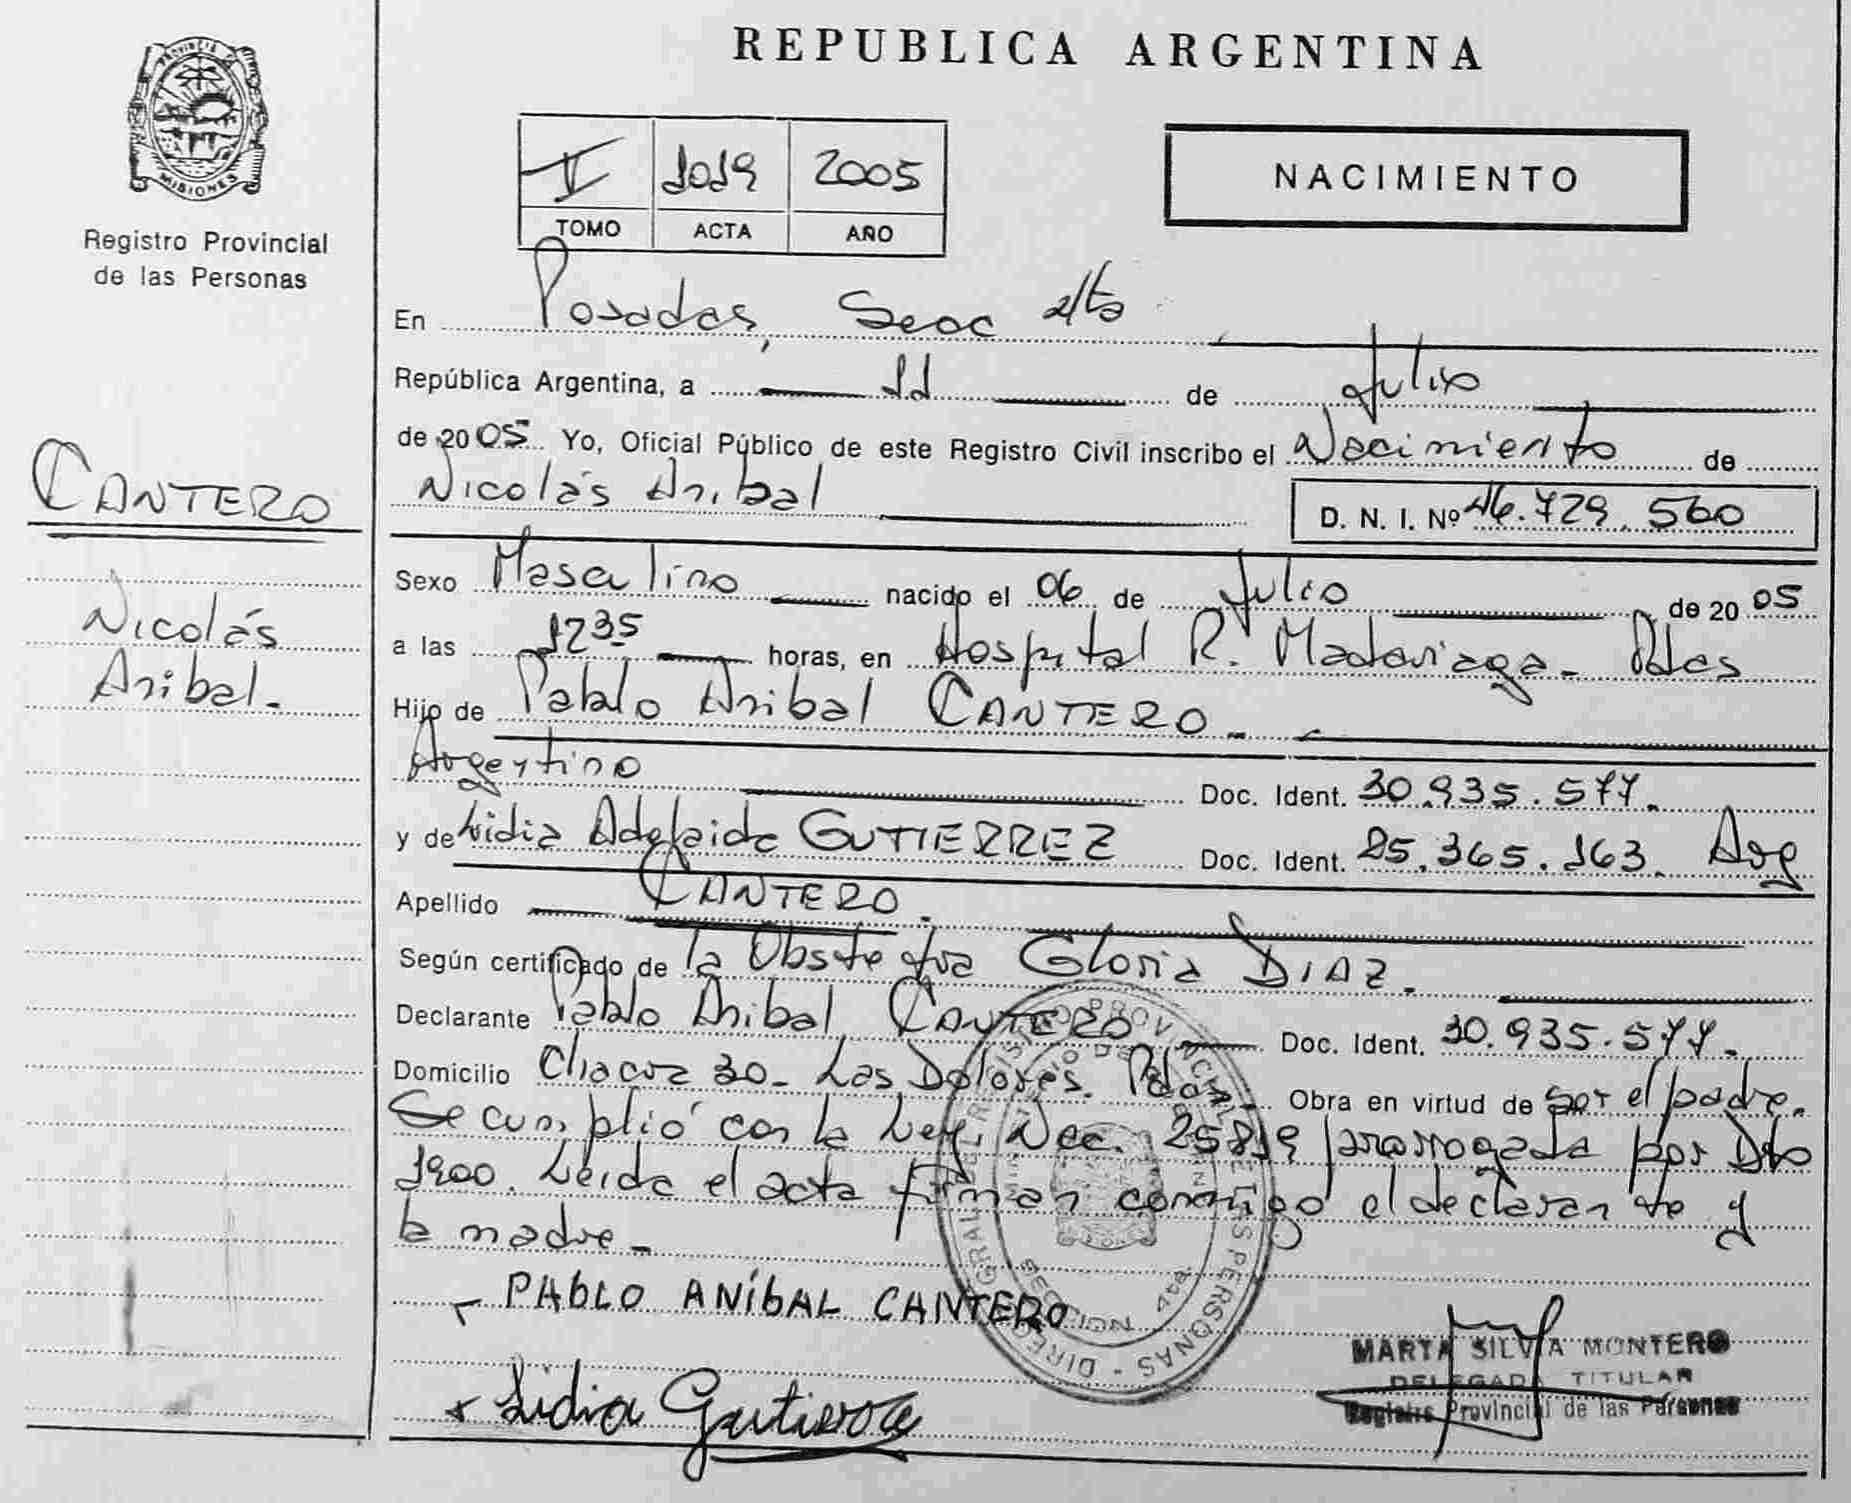 REPUBLICA ARGENTINA
PROVINCIA DE
MISIONES
Registro Provincial
de las Personas
V 1019 2005
TOMO ACTA AÑO
NACIMIENTO
En Posadas, Secc 4ta
República Argentina, a 11 de Julio
de 2005 Yo, Oficial Público de este Registro Civil inscribo el Nacimiento de
Nicolás Anibal D. N. I. Nº 46.729.560
CANTERO
Nicolás
Anibal.
Sexo Masculino nacido el 06 de Julio de 2005
a las 1235 horas, en Hospital R. Madariaga - Pdas
Hijo de Pablo Anibal CANTERO
Argentino Doc. Ident. 30.935.577.
y de Lidia Adelaida GUTIERREZ Doc. Ident. 25.365.163. Arg
Apellido CANTERO.
Según certificado de la Obstetra Gloria DIAZ.
Declarante Pablo Anibal CANTERO Doc. Ident. 30.935.577.
Domicilio Chacra 30 - Las Dolores. Pdas. Obra en virtud de ser el padre.
Se cumplió con la Ley. Nac. 25819 prorrogada por Dto
1900. Leída el acta firman conmigo el declarante y
la madre -
PABLO ANÍBAL CANTERO
Lidia Gutierrez
DIRECCION GRAL DEL REGISTRO PROVINCIAL DE LAS PERSONAS
SECCION 4ta
MARTA SILVIA MONTERO
DELEGADA TITULAR
Registro Provincial de las Personas